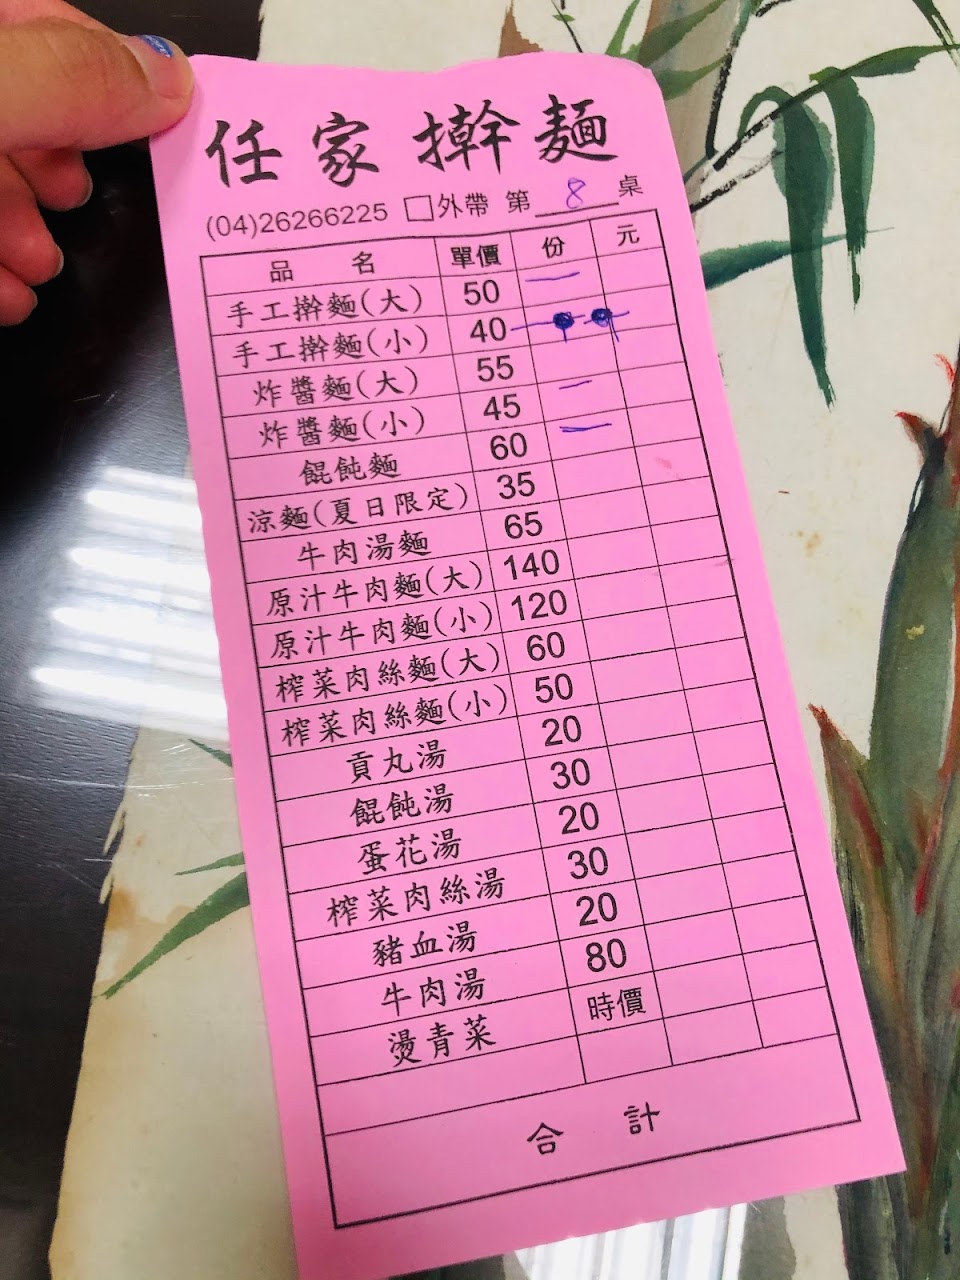 任家擀麵
(04)26266225 □外帶 第 8 桌
品名 單價 份 元
手工擀麵(大) 50 一
手工擀麵(小) 40
炸醬麵(大) 55 一
炸醬麵(小) 45 一
餛飩麵 60
涼麵(夏日限定) 35
牛肉湯麵 65
原汁牛肉麵(大) 140
原汁牛肉麵(小) 120
榨菜肉絲麵(大) 60
榨菜肉絲麵(小) 50
貢丸湯 20
餛飩湯 30
蛋花湯 20
榨菜肉絲湯 30
豬血湯 20
牛肉湯 80
燙青菜 時價
合計